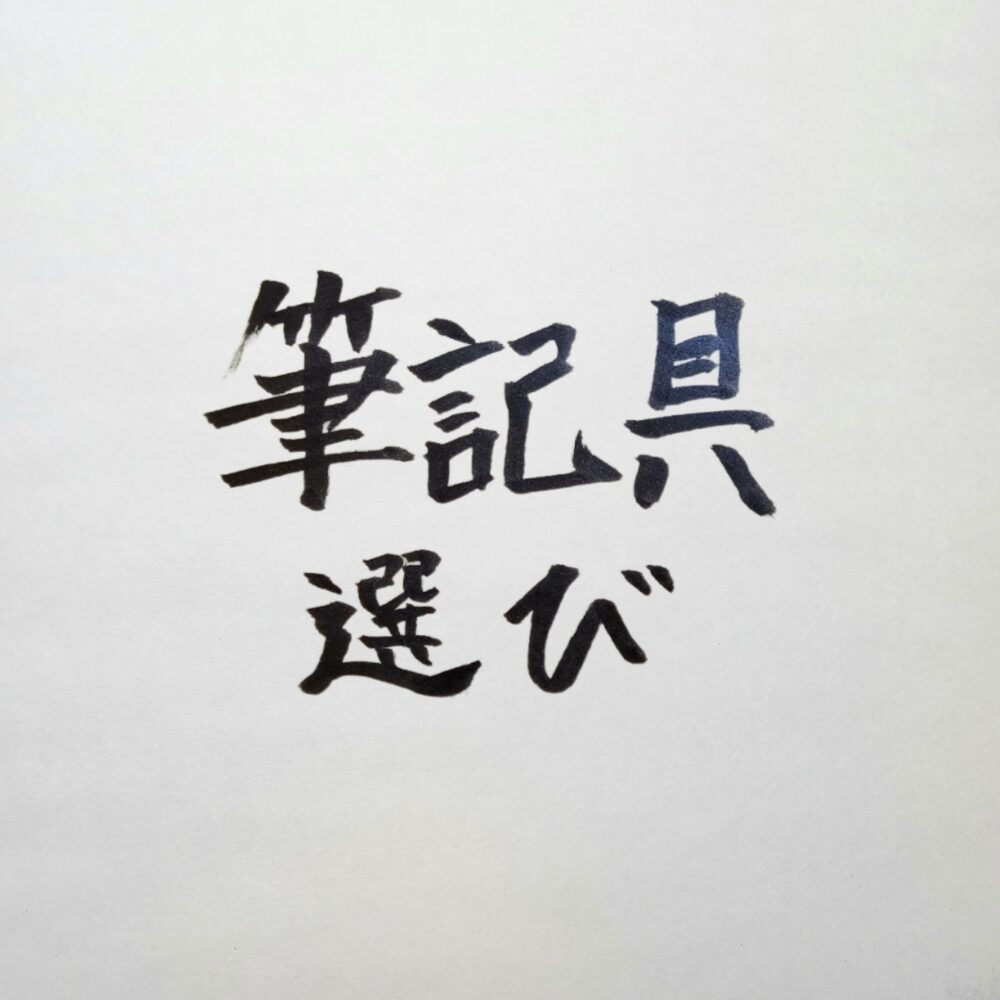 筆記具
選び